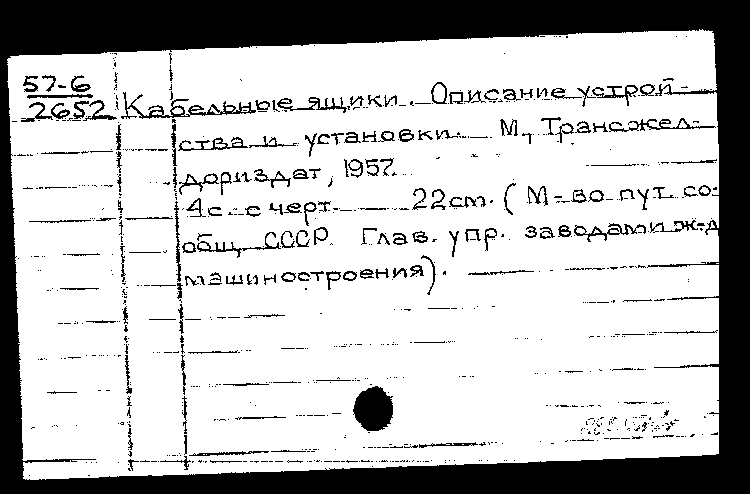 57-6
2652 Кабельные ящики. Описание устрой-
ства и установки. М., Трансжел-
дориздат, 1957.
4с. с черт. 22см. (М-во пут. со-
общ. СССР. Глав. упр. заводами ж-д
машиностроения).